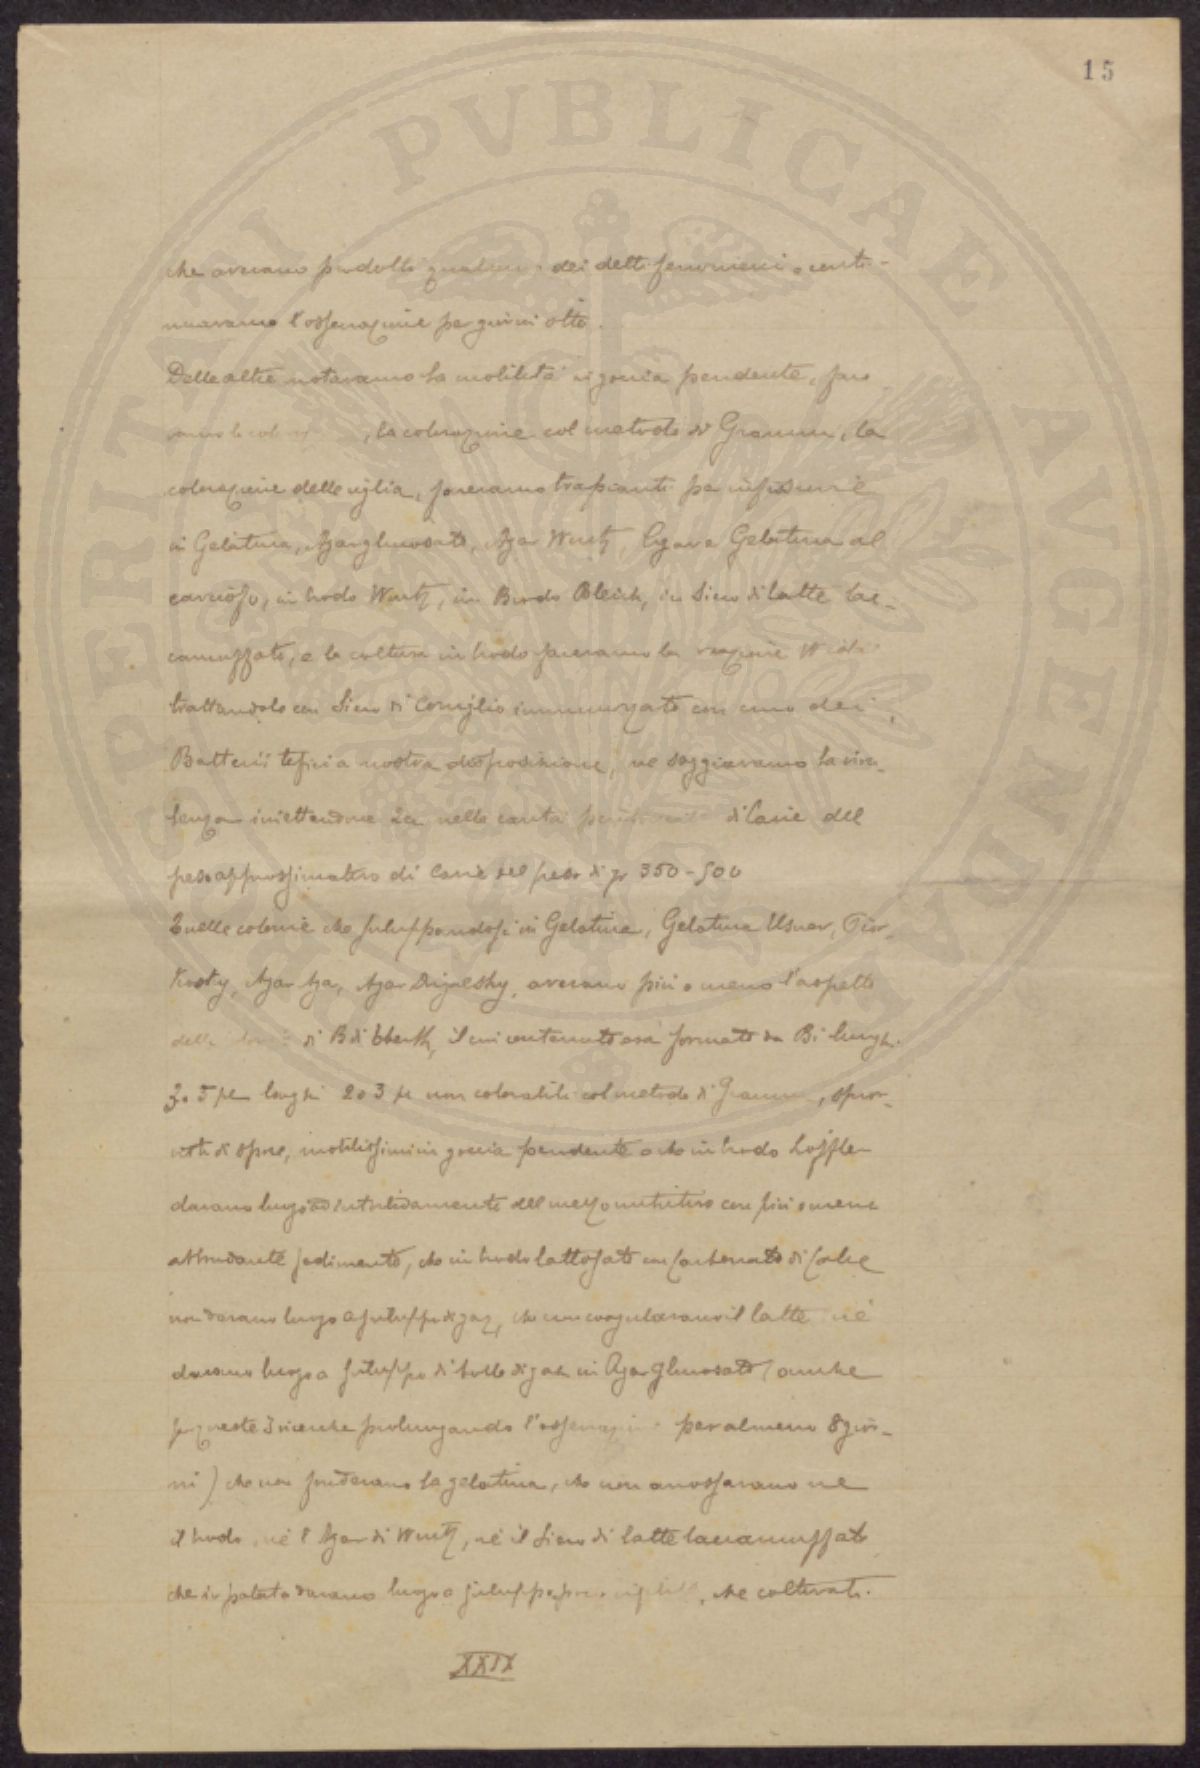 15
che avevano prodotto qualcuno dei detti fenomeni e conti-
nuavamo l'osservazione per giorni otto.
Delle altre notavamo la mobilità in goccia pendente, face
vamo la , la colorazione col metodo di Gramm, la
colorazione delle ciglia, facevamo trapianti per infissione
in Gelatina, Agar glucosato, Agar Wurtz, Agar e Gelatina al
carciofo, in brodo Wurtz, in Brodo Bleisch, in Siero di latte lac-
camuffato, e la coltura in brodo facevamo la reazione Widal
trattandolo con Siero di Coniglio immunizzato con uno dei
Batterii tifici a nostra disposizione, ne saggiavamo la viru-
lenza iniettandone nella cavità di Cavie del
peso approssimativo di Cavie del peso di gr 350-500
Quelle colonie che sviluppandosi in Gelatina, Gelatina Elsner, Pior-
kosky, Agar Agar, Agar Drigalsky, avevano più o meno l'aspetto
delle di B di Eberth, il cui contenuto era formato da Bi lunghi
3 o 5 µ lunghi 2 o 3 µ non colorabili col metodo di Gramm, sprov-
visti di spore, mobilissimi in goccia pendente e che in brodo Löffler
davano luogo ad intorbidamento del mezzo nutritivo con più o meno
abbondante sedimento, che in brodo lattosato con Carbonato di Calce
non davano luogo a sviluppo di gaz, che non coagulavano il latte nè
davano luogo a sviluppo di bolle di gaz in Agar glucosato (anche
per queste ricerche prolungando l'osservazione per almeno 8 gior-
ni) che non fondevano la gelatina, che non arrossavano nè
il brodo, nè l'Agar di Wurtz, nè il Siero di latte laccamuffato
che in patata davano luogo a sviluppo , che coltivati.
XXIX
PROSPERITATI PVBLICAE AVGENDAE